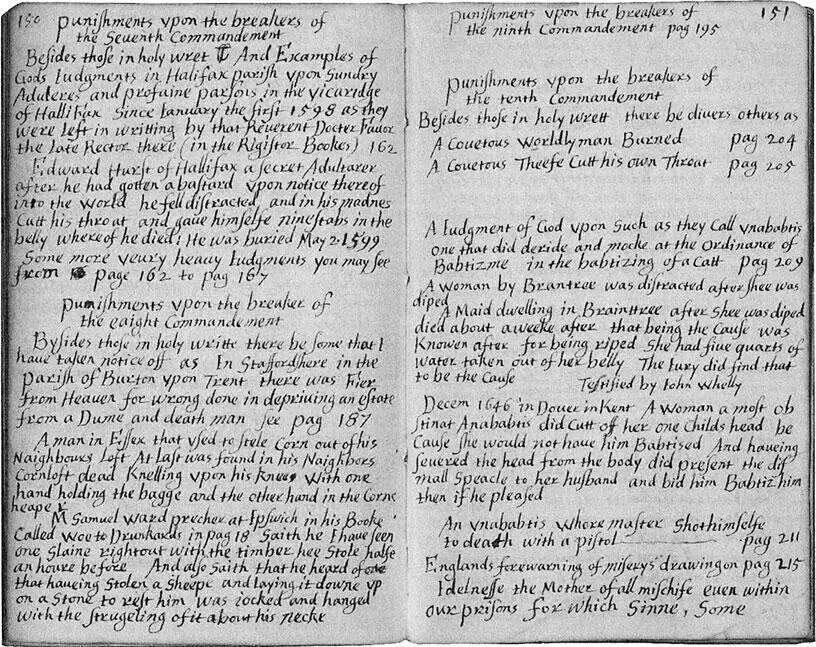 150
Punishments vpon the breakers of
the Seventh Commandement
Besides those in holy wret And Examples of
Gods Iudgments in Halifax parish vpon Sundry
Adulteres and profaine parsons in the vicaridge
of Hallifax Since Ianuary the first 1598 as they
were left in writting by that Reverent Docter Fauor
the Late Rector there (in the Rigistor Bookes) 162
Edward Hurst of Hallifax a secret Adultarer
after he had gotten a bastard vpon notice thereof
into the world he fell distracted, and in his madnes
Cutt his throat and gaue himselfe nine stabs in the
belly whereof he died: He was buried May 2 1599
Some more veury heavy Iudgments you may see
from page 162 to pag 167
Punishments vpon the breaker of
the eaight Commandement
Bysides those in holy writte there be some that I
haue taken notice off as In Staffordshere in the
Parish of Burton vpon Trent there was Fier
from Heaven for wrong done in depriuing an estate
from a Dume and death man see pag 187
A man in Essex that vsed to stele Corn out of his
Naighbours Loft At Last was found in his Naighbors
Cornloft dead Knelling vpon his Knees With one
hand holding the bagge and the other hand in the Corne
heape
M Samuel Ward precher at Ipswich in his Booke
Called Woe to Drunkards in pag 18 Saith he I haue seen
one Slaine rightout with the timber hee Stole halfe
an houre before And also Saith that he heard of one
that haueing Stolen a Sheepe and laying it downe vp
on a Stone to rest him was iocked and hanged
with the strugeling of it about his necke
151
Punishments vpon the breakers of
the ninth Commandement pag 195
Punishments vpon the breakers of
the tenth Commandement
Besides those in holy wrett there be divers others as
A Covetous Worldly man Burned pag 204
A Covetous Theefe Cutt his own Throat pag 205
A Iudgment of God vpon Such as they Call vnababtis
one that did deride and mocke at the Ordinance of
Babtizme in the babtizing of a Catt pag 209
A woman by Brantree was distracted after shee was
diped
A Maid dwelling in Brainttree after Shee was diped
died about a weeke after that being the Cause was
Knowen after for being riped She had five quarts of
water taken out of her belly The Iury did find that
to be the Cause Testified by Iohn Whelly
Decem 1646 in Dover in Kent A Woman a most ob
stinat Anababtis did Cutt off her one Childs head be
Cause She would not have him Babtised And haueing
seuered the head from the body did present the dis
mall Speacle to her husband and bid him Babtiz him
then if he pleased
An vnababtis Whore master Shot himselfe
to death with a pistol pag 211
Englands forewarning of miserys drawing on pag 215
Idelnesse the Mother of all mischife even within
our prisons for which Sinne, Some